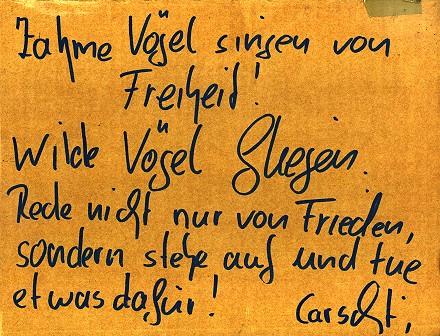 Zahme Vögel singen von
Freiheid!
Wilde Vögel fliegen.
Rede nicht nur von Frieden,
sondern stehe auf und tue
etwas dafür!
Carschti,